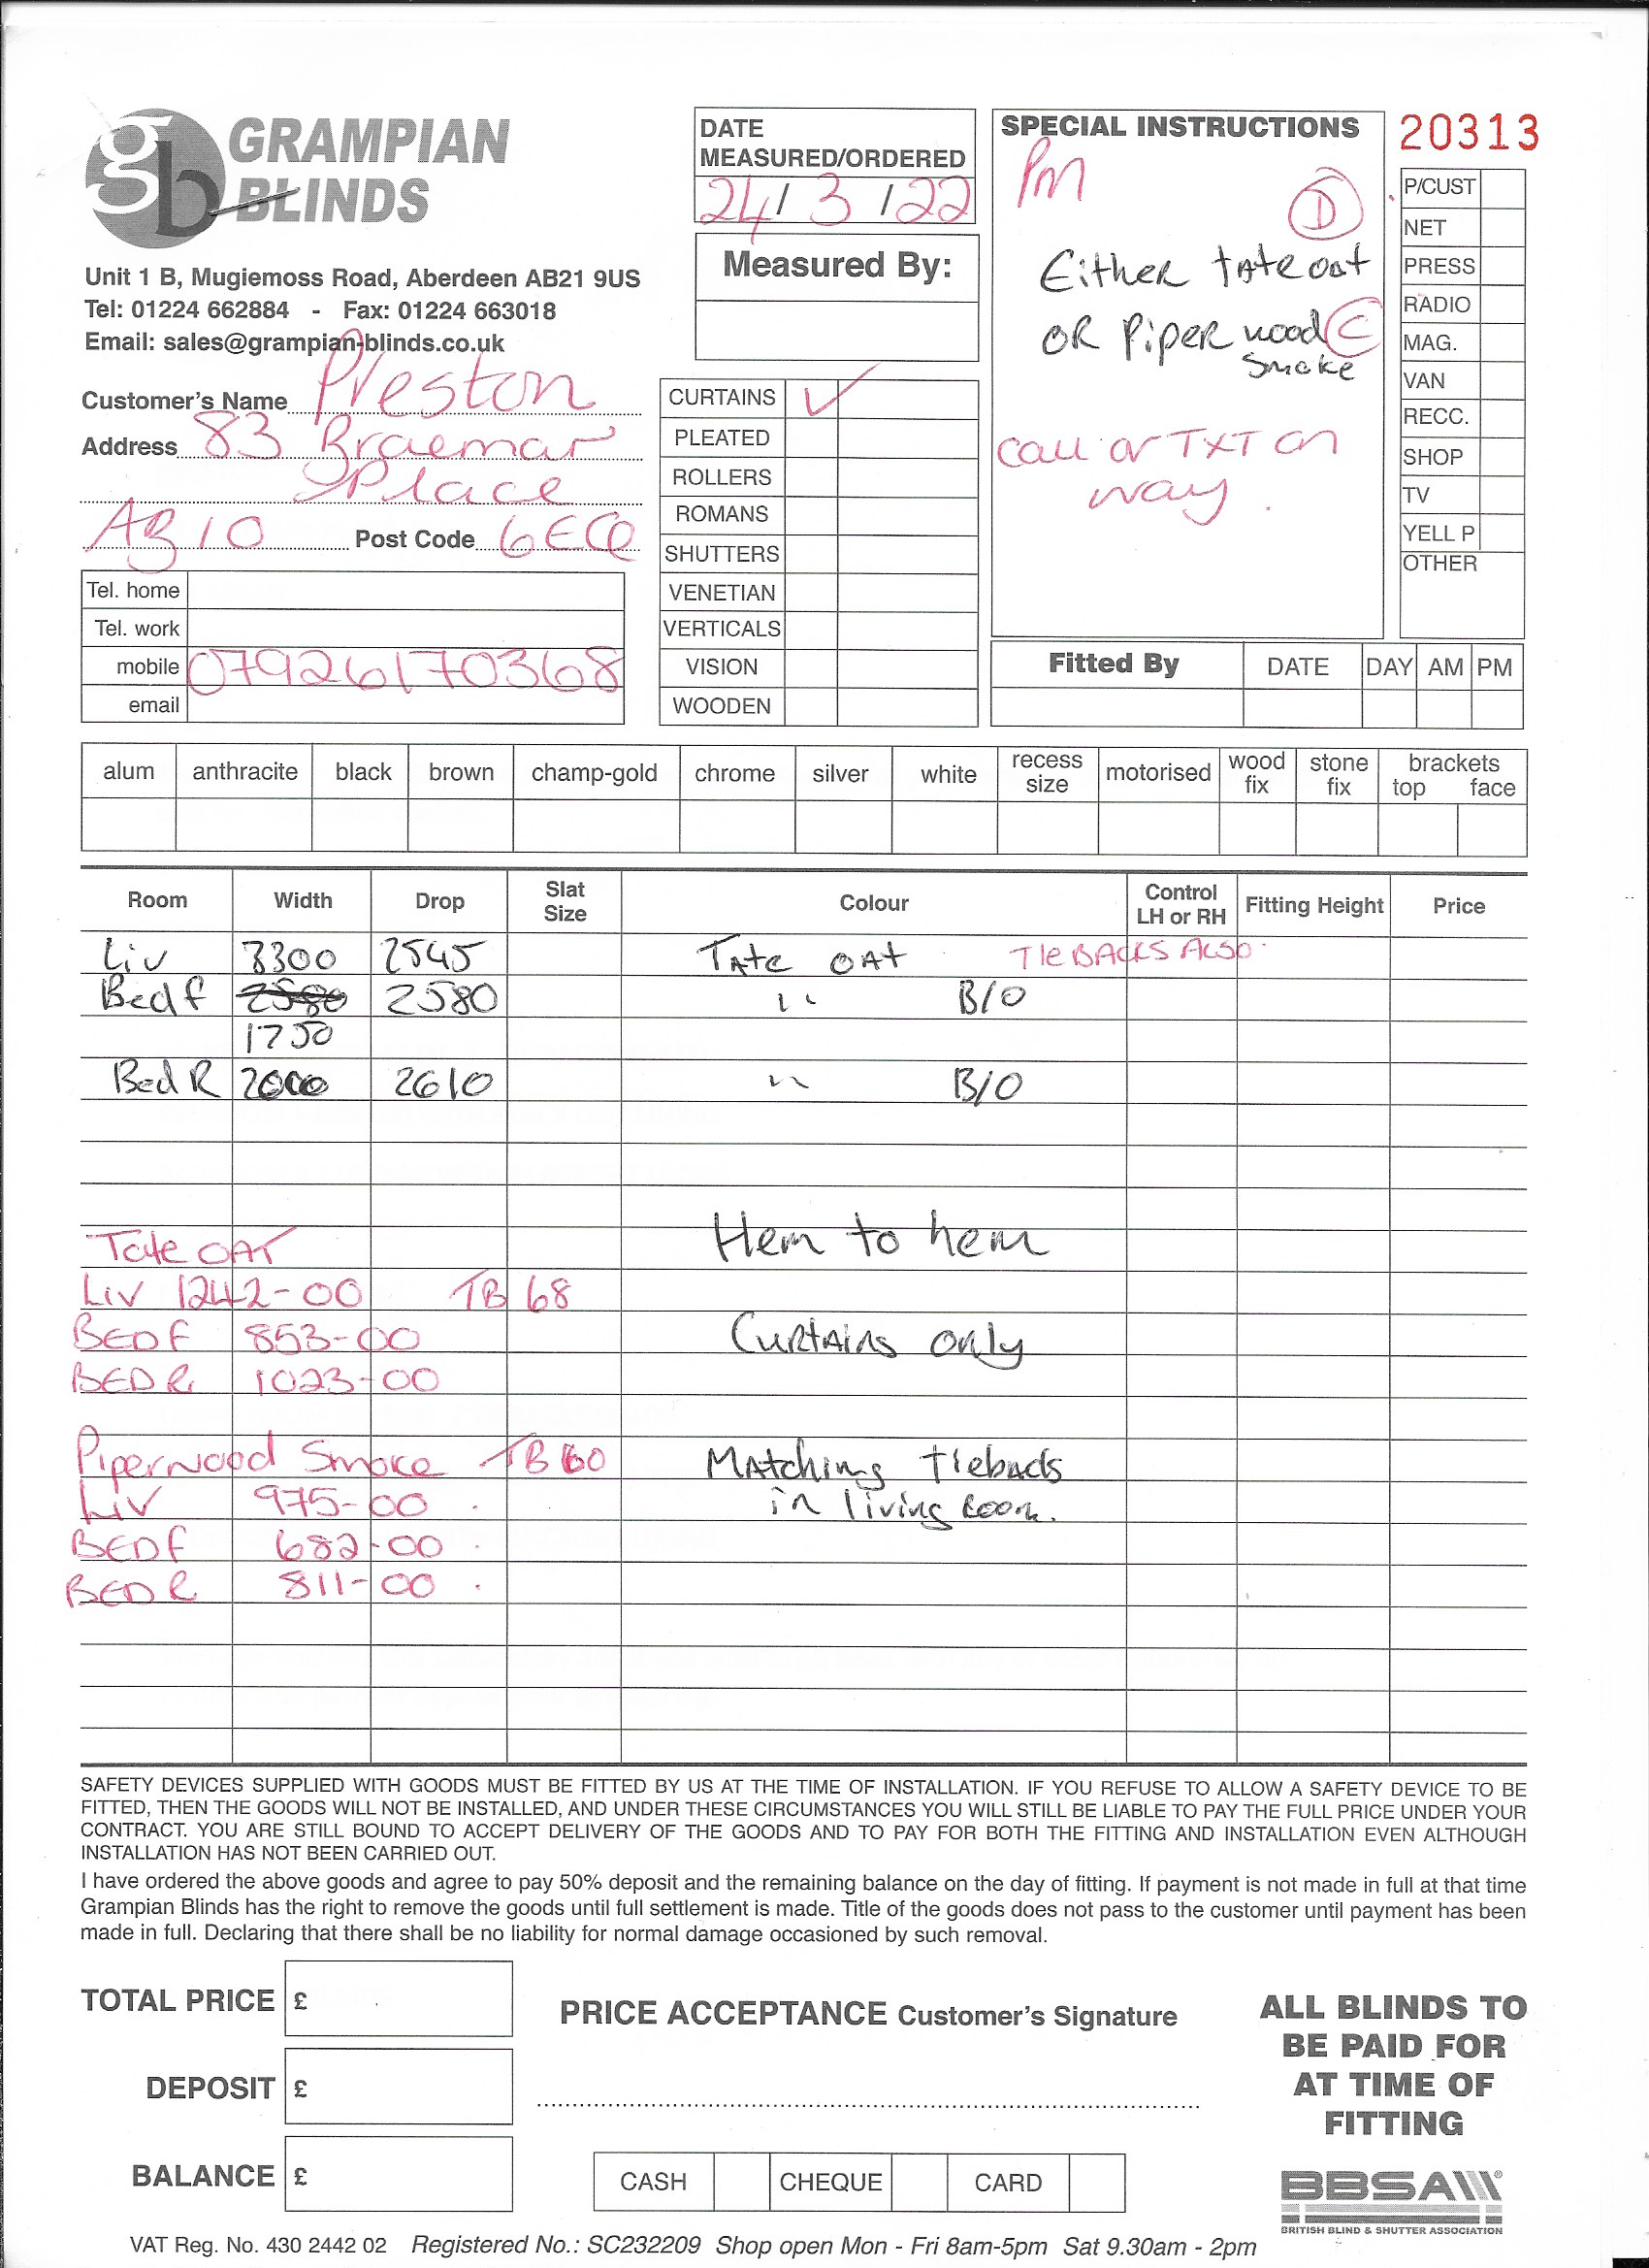 gb GRAMPIAN
BLINDS
Unit 1 B, Mugiemoss Road, Aberdeen AB21 9US
Tel: 01224 662884 - Fax: 01224 663018
Email: sales@grampian-blinds.co.uk
Customer's Name Preston
Address 83 Braemar
Place
AB10 Post Code 6EQ
Tel. home
Tel. work
mobile 07926170368
email
DATE
MEASURED/ORDERED
24/ 3 /22
Measured By:
CURTAINS ✓
PLEATED
ROLLERS
ROMANS
SHUTTERS
VENETIAN
VERTICALS
VISION
WOODEN
SPECIAL INSTRUCTIONS
PM
D
Either tate oat
OR Piper wood C
Smoke
Call or TXT on
way.
20313
P/CUST
NET
PRESS
RADIO
MAG.
VAN
RECC.
SHOP
TV
YELL P
OTHER
Fitted By DATE DAY AM PM
alum anthracite black brown champ-gold chrome silver white recess size motorised wood fix stone fix brackets top face
Room Width Drop Slat Size Colour Control LH or RH Fitting Height Price
Liv 3300 2545 Tate OAt TIE BACKS ALSO
Bed f 2580 2580 " B/O
1750
Bed R 2000 2610 " B/O
Tate OAT Hem to hem
Liv 1242-00 TB 68
BED F 853-00 Curtains only
BED R 1023-00
Piperwood Smoke TB 60 Matching tiebacks
Liv 975-00 in living room.
BED F 682-00
BED R 811-00
SAFETY DEVICES SUPPLIED WITH GOODS MUST BE FITTED BY US AT THE TIME OF INSTALLATION. IF YOU REFUSE TO ALLOW A SAFETY DEVICE TO BE
FITTED, THEN THE GOODS WILL NOT BE INSTALLED, AND UNDER THESE CIRCUMSTANCES YOU WILL STILL BE LIABLE TO PAY THE FULL PRICE UNDER YOUR
CONTRACT. YOU ARE STILL BOUND TO ACCEPT DELIVERY OF THE GOODS AND TO PAY FOR BOTH THE FITTING AND INSTALLATION EVEN ALTHOUGH
INSTALLATION HAS NOT BEEN CARRIED OUT.
I have ordered the above goods and agree to pay 50% deposit and the remaining balance on the day of fitting. If payment is not made in full at that time
Grampian Blinds has the right to remove the goods until full settlement is made. Title of the goods does not pass to the customer until payment has been
made in full. Declaring that there shall be no liability for normal damage occasioned by such removal.
TOTAL PRICE £
DEPOSIT £
BALANCE £
PRICE ACCEPTANCE Customer's Signature
CASH CHEQUE CARD
ALL BLINDS TO
BE PAID FOR
AT TIME OF
FITTING
BBSA
BRITISH BLIND & SHUTTER ASSOCIATION
VAT Reg. No. 430 2442 02 Registered No.: SC232209 Shop open Mon - Fri 8am-5pm Sat 9.30am - 2pm